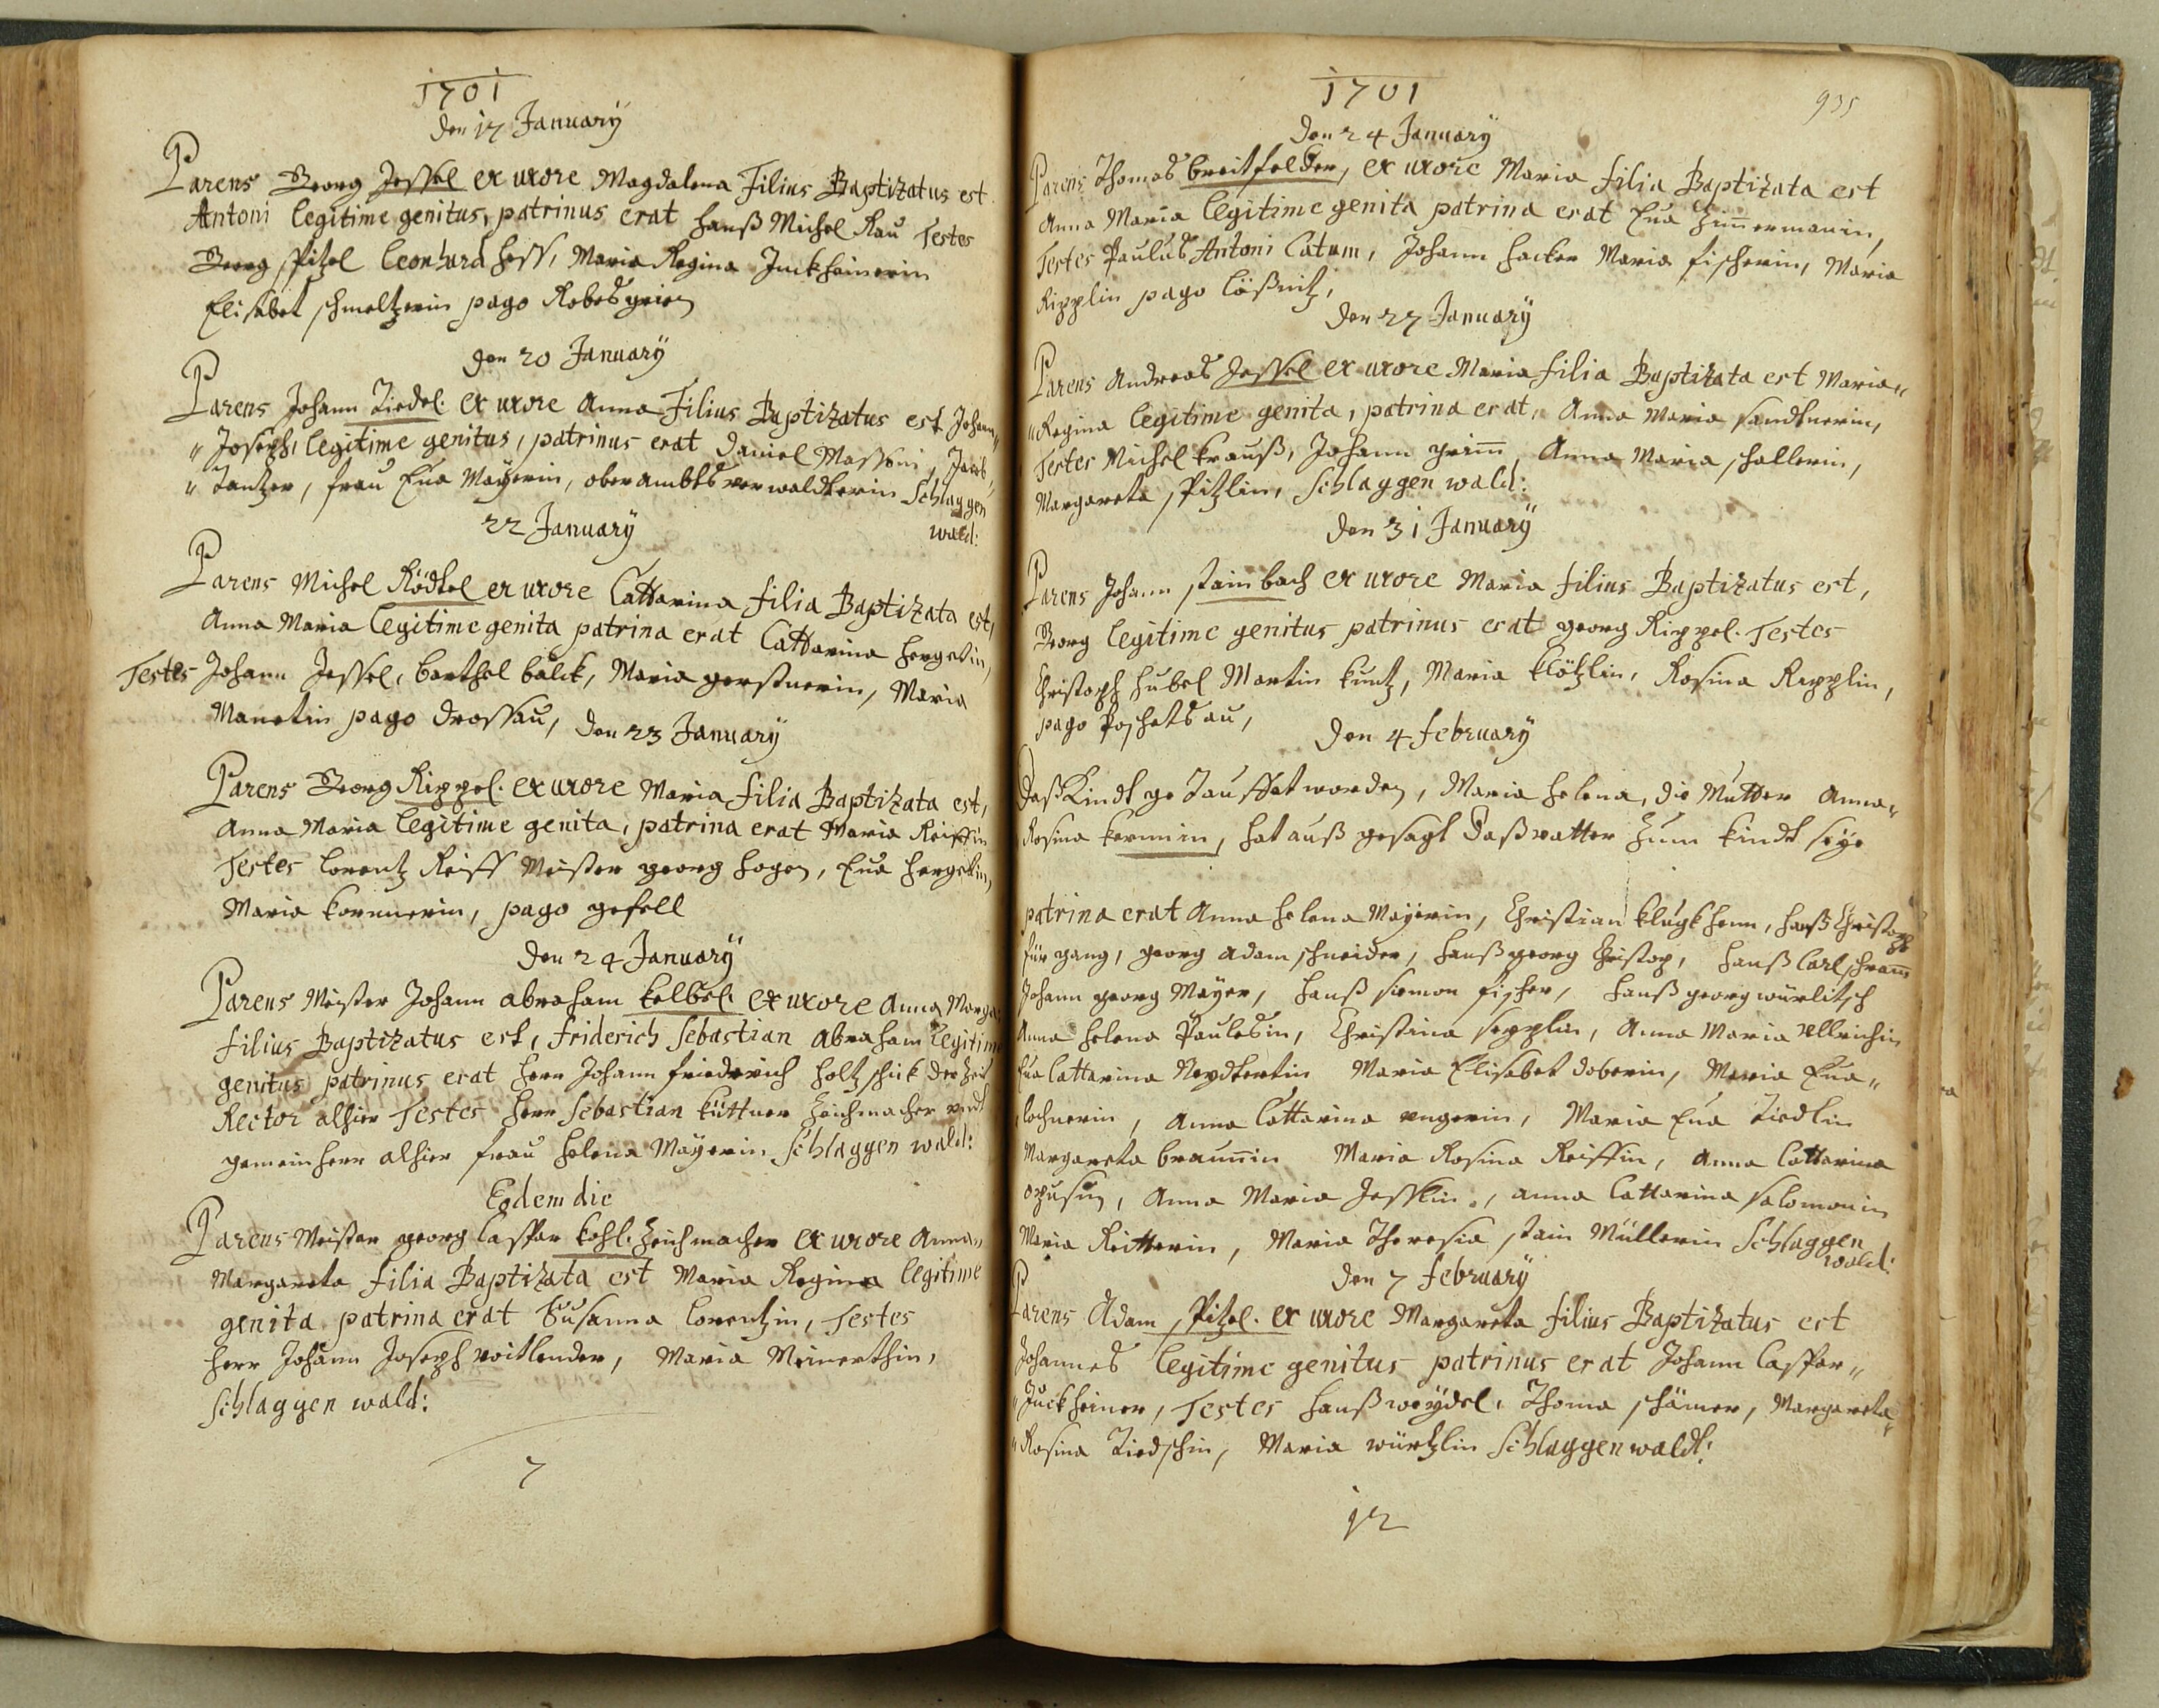 1701
den 17 January
Parens Georg Jessel ex uxore Magdalena Filius Baptizatus est
Antoni legitime genitus, patrinus erat hanß Michel Rau Testes
Georg Pitzel Leonhard hess, Maria Regina Juckheinerin
Elisabet schmeltzerin pago Robesgrien
den 20 January
Parens Johann Tiedel. ex uxore Anna Filius Baptizatus est Johann "
" Joseph, legitime genitus, patrinus erat Daniel Massoni, Jacob,
" Tantzer, frau Eua Mayerin, oberambtsverwaldterin Schlaggen
wald:
22 January
Parens Michel Rödtel ex uxore Cattarina filia Baptizata est,
Anna Maria legitime genita patrina erat Cattarina hergetin,
Testes Johann Jessel, barthel balck, Maria gerstnerin, Maria
Manetin pago drossau,
den 23 January
Parens Georg Rippel. ex uxore Maria filia Baptizata est,
Anna Maria legitime genita, patrina erat Maria Reissin
Testes lorentz Reiss Meister georg hogen, Eua hergetin,
Maria kornnerin, pago gefell
den 24 January
Parens Meister Johann abraham kelbel. ex uxore Anna Marga
filius Baptizatus est, friderich Sebastian Abraham legitime
genitus patrinus erat herr Johann friederich holtzschick der Zeit
Rector alhier Testes herr Sebastian küttner Zeichmacher vndt
gemeinherr alhier frau helena Mayerin Schlaggen wald:
Eodem die
Parens Meister georg Casspar kohl. Zeichmacher ex uxore Anna "
Margareta filia Baptizata est Maria Regina legitime
genita patrina erat Susanna lorentzin, Testes
herr Johann Joseph voitlender, Maria Meinerthin,
Schlaggen wald:
7
1701
935
den 24 January
Parens Thomas breitfelder, ex uxore Maria filia Baptizata est
Anna Maria legitime genita patrina erat Eua Zimermanin,
Testes Paulus Antoni Catum, Johann hacker Maria fischerin, Maria
Ripplin pago lößnitz,
den 27 January
Parens Andreas Jessel ex uxore Maria filia Baptizata est Maria "
" Regina legitime genita, patrina erat, Anna Maria sandnerin,
Testes Michel krauß, Johann grim, Anna Maria schallerin,
Margareta Pitzlin, Schlaggen wald:
den 31 January
Parens Johann stainbach ex uxore Maria filius Baptizatus est,
Georg legitime genitus patrinus erat georg Rippel. Testes
Christoph hubel Martin kuntz, Maria klötzlin, Rosina Ripplin,
pago Poschetsau,
den 4 february
Daß Kindt getauffet worden, Maria helena, die Mutter Anna "
Rosina kermin, hat auß gesagt daß vatter zum kindt seye
patrina erat Anna helena Mayerin, Christian klugkhenn, hanß Christoph
für gang, georg adam schneider, hanß georg Christop, hanß Carl schram
Johann georg Mayer, hanß simon fischer, hanß georg würlitsch
Anna helena Paulesin, Christina sepplin, Anna Maria Ullrichin
Eua Cattarina Neydtertin Maria Elisabet doberin, Maria Eua "
lochnerin, Anna Cattarina ungerin, Maria Eua Tiedlin
Margareta braunin Maria Rosina Reissin, Anna Cattarina
Anna Maria Jesslin, anna Cattarina salomonin
Maria Reitterin, Maria Theresia stain Müllerin Schlaggen
wald:
den 7 february
Parens Adam Pitzel. ex uxore Margareta filius Baptizatus est
Johannes legitime genitus patrinus erat Johann Casspar "
" Juckheiner, Testes hanß weydel, Thoma schämer, Margareta "
" Rosina Tiedschin, Maria würtzlin Schlaggenwaldt:
12